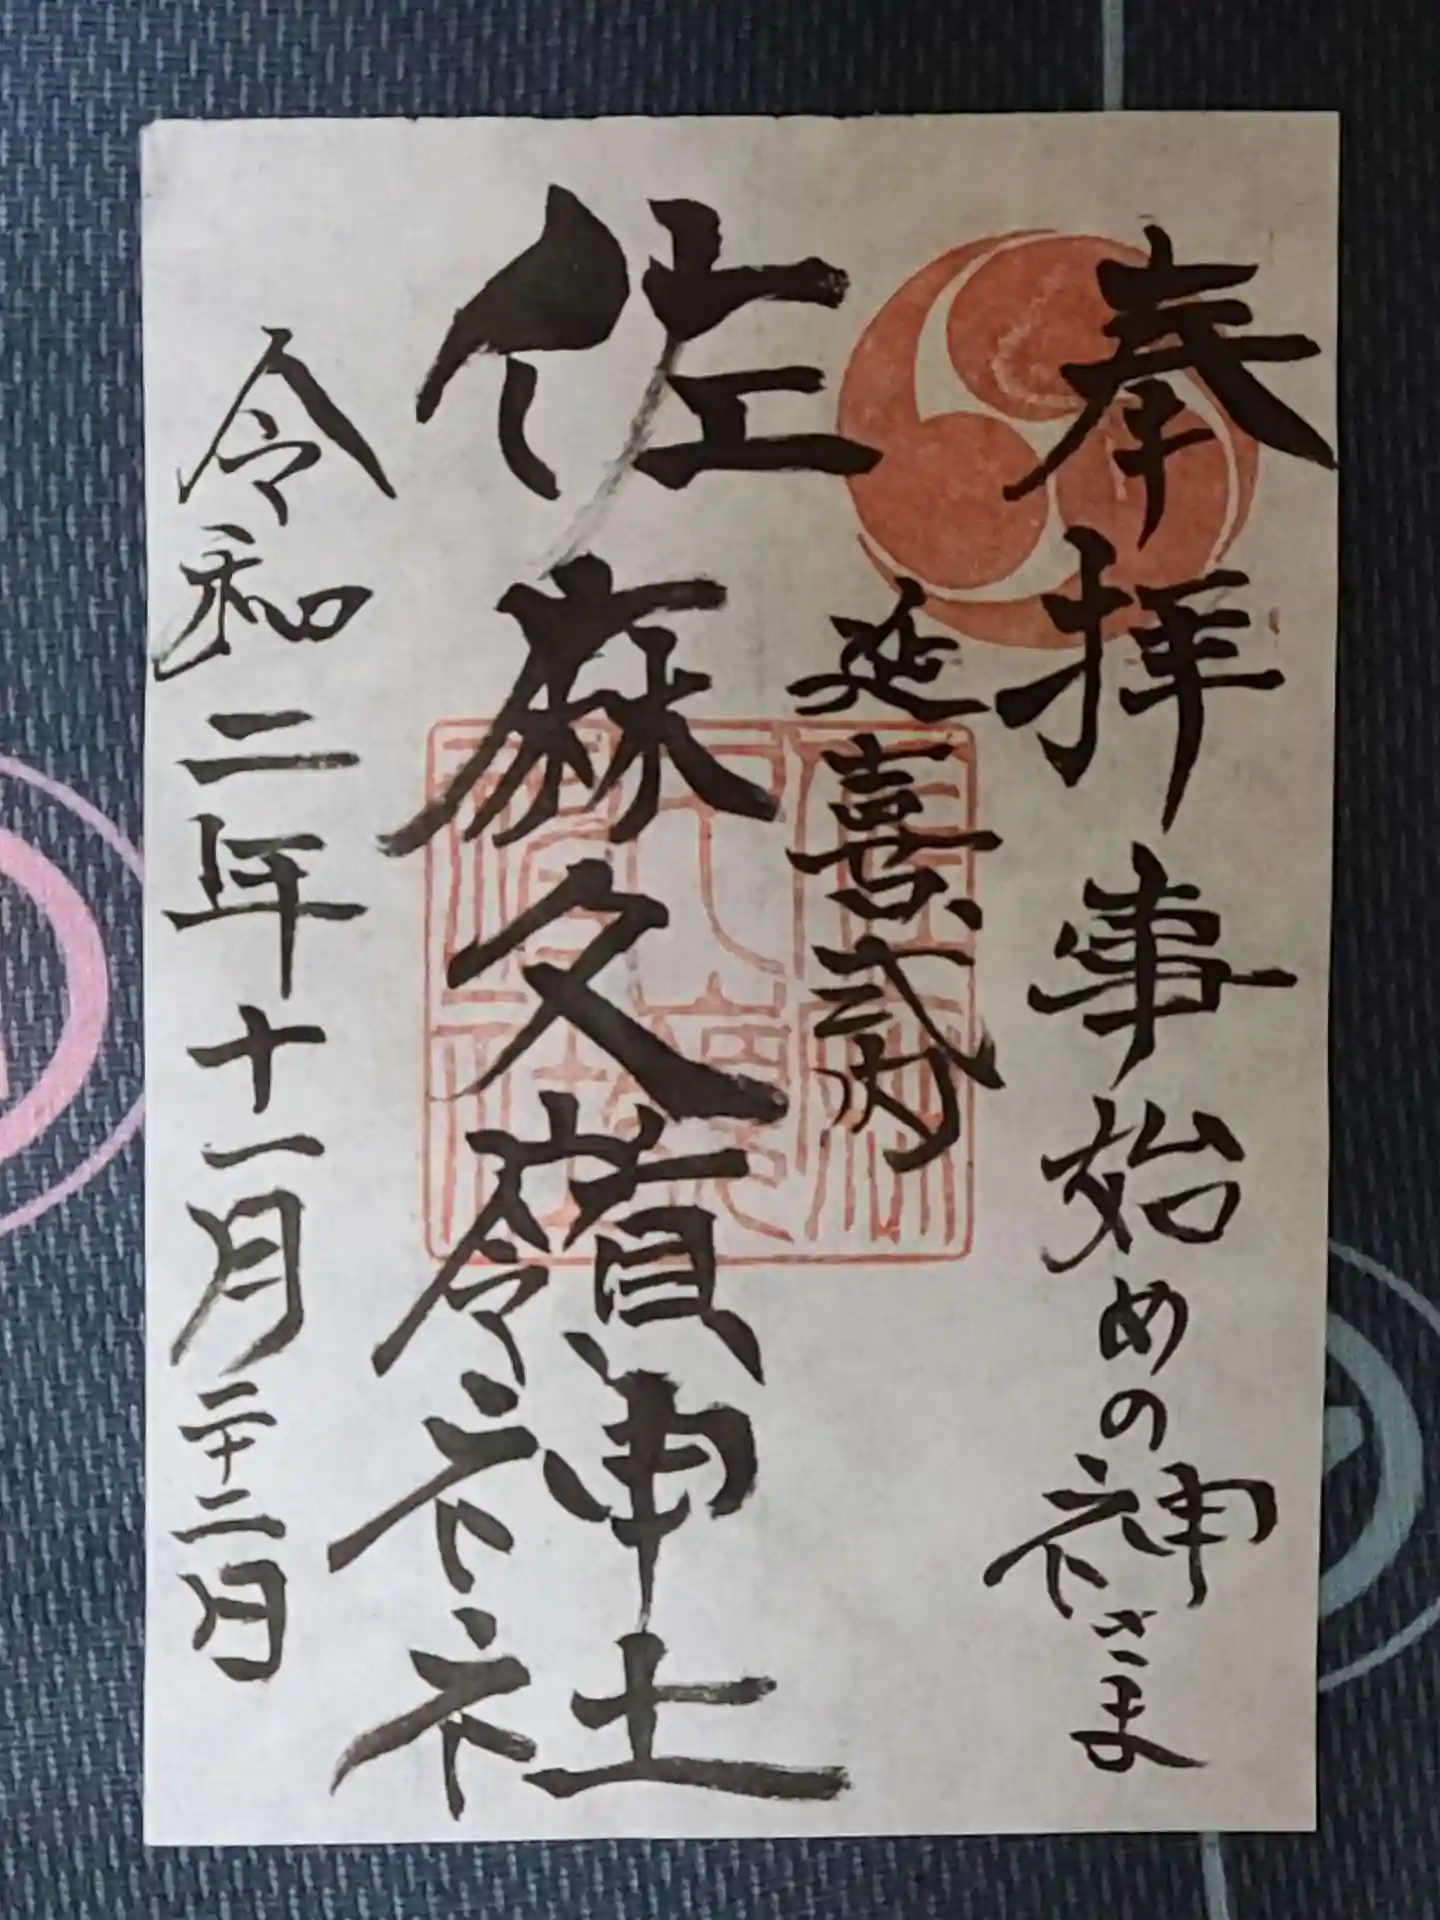 奉拝 事始めの神さま
延喜式内
佐麻久嶺神社
令和二年十一月二十二日